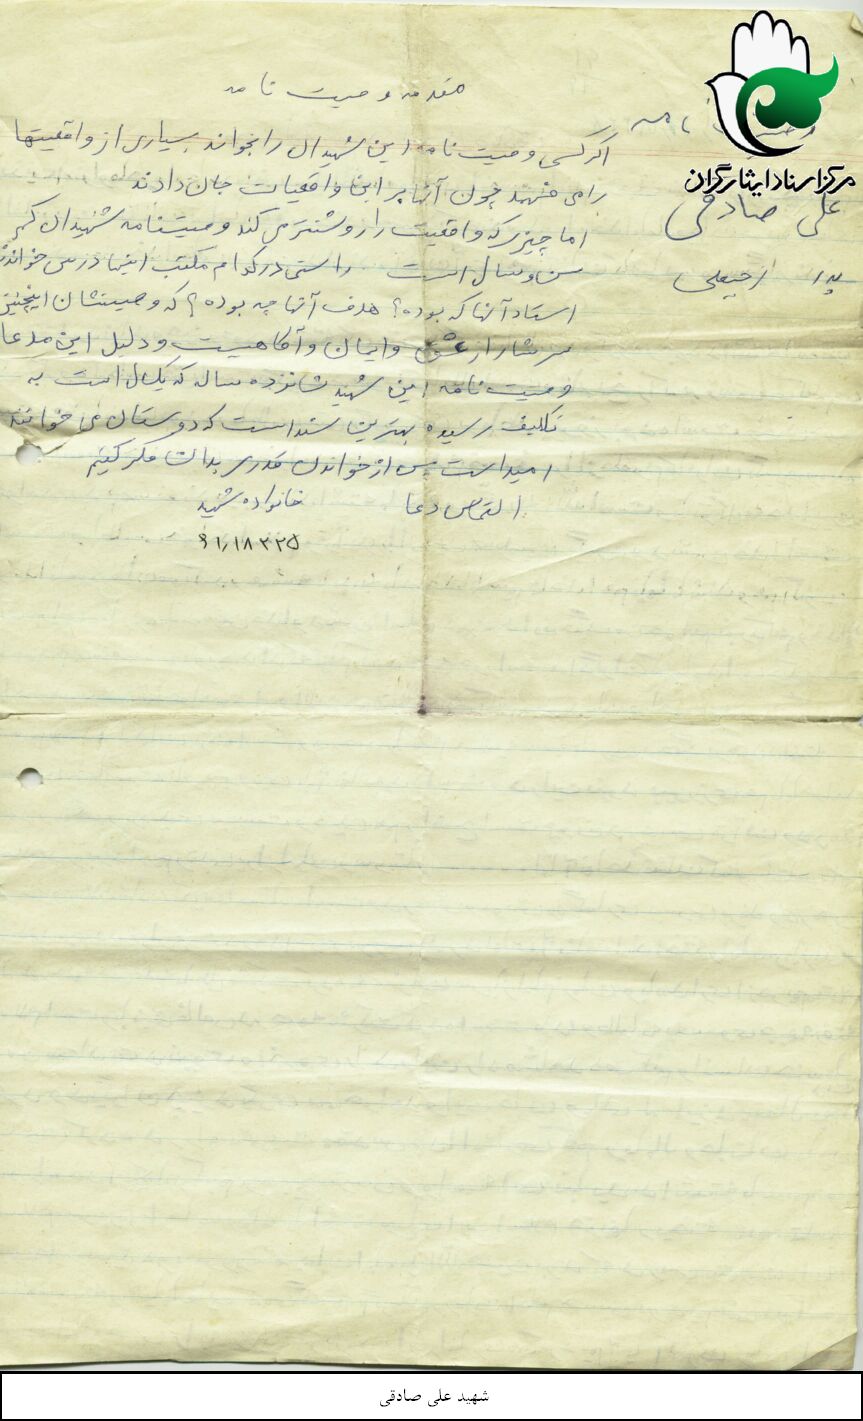 مقدمه وصیت نامه
اگر کسی وصیت نامه این شهیدان را بخواند بسیاری از واقعیتها
را می فهمد چون آنها بر این واقعیات جان دادند
اما چیزی که واقعیت را روشنتر می کند وصیتنامه شهیدان کم
سن و سال است راستی در کدام مکتب اینها درس خواندند
استاد آنها که بوده؟ هدف آنها چه بوده؟ که وصیتشان اینچنین
سرشار از عشق و ایمان و آگاهیست و دلیل این مدعا
وصیت نامه این شهید شانزده ساله که یکسال است به
تکلیف رسیده بهترین سند است که دوستان می خوانند
امید است پس از خواندن قدری بدان فکر کنیم
التماس دعا خانواده شهید
۹۱٫۱۸۳۲۵
مرکز اسناد ایثارگران
علی صادقی
پدر رجبعلی
شهید علی صادقی